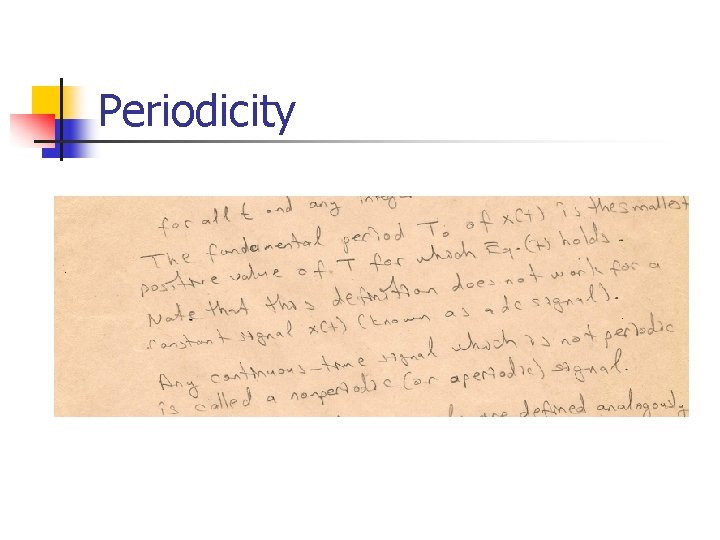 Periodicity
for all t and any integ
The fundamental period To of x(t) is the smallest
positive value of T for which Eq.(*) holds.
Note that this definition does not work for a
constant signal x(t) (known as a dc signal).
Any continuous-time signal which is not periodic
is called a nonperiodic (or aperiodic) signal.
are defined analogously